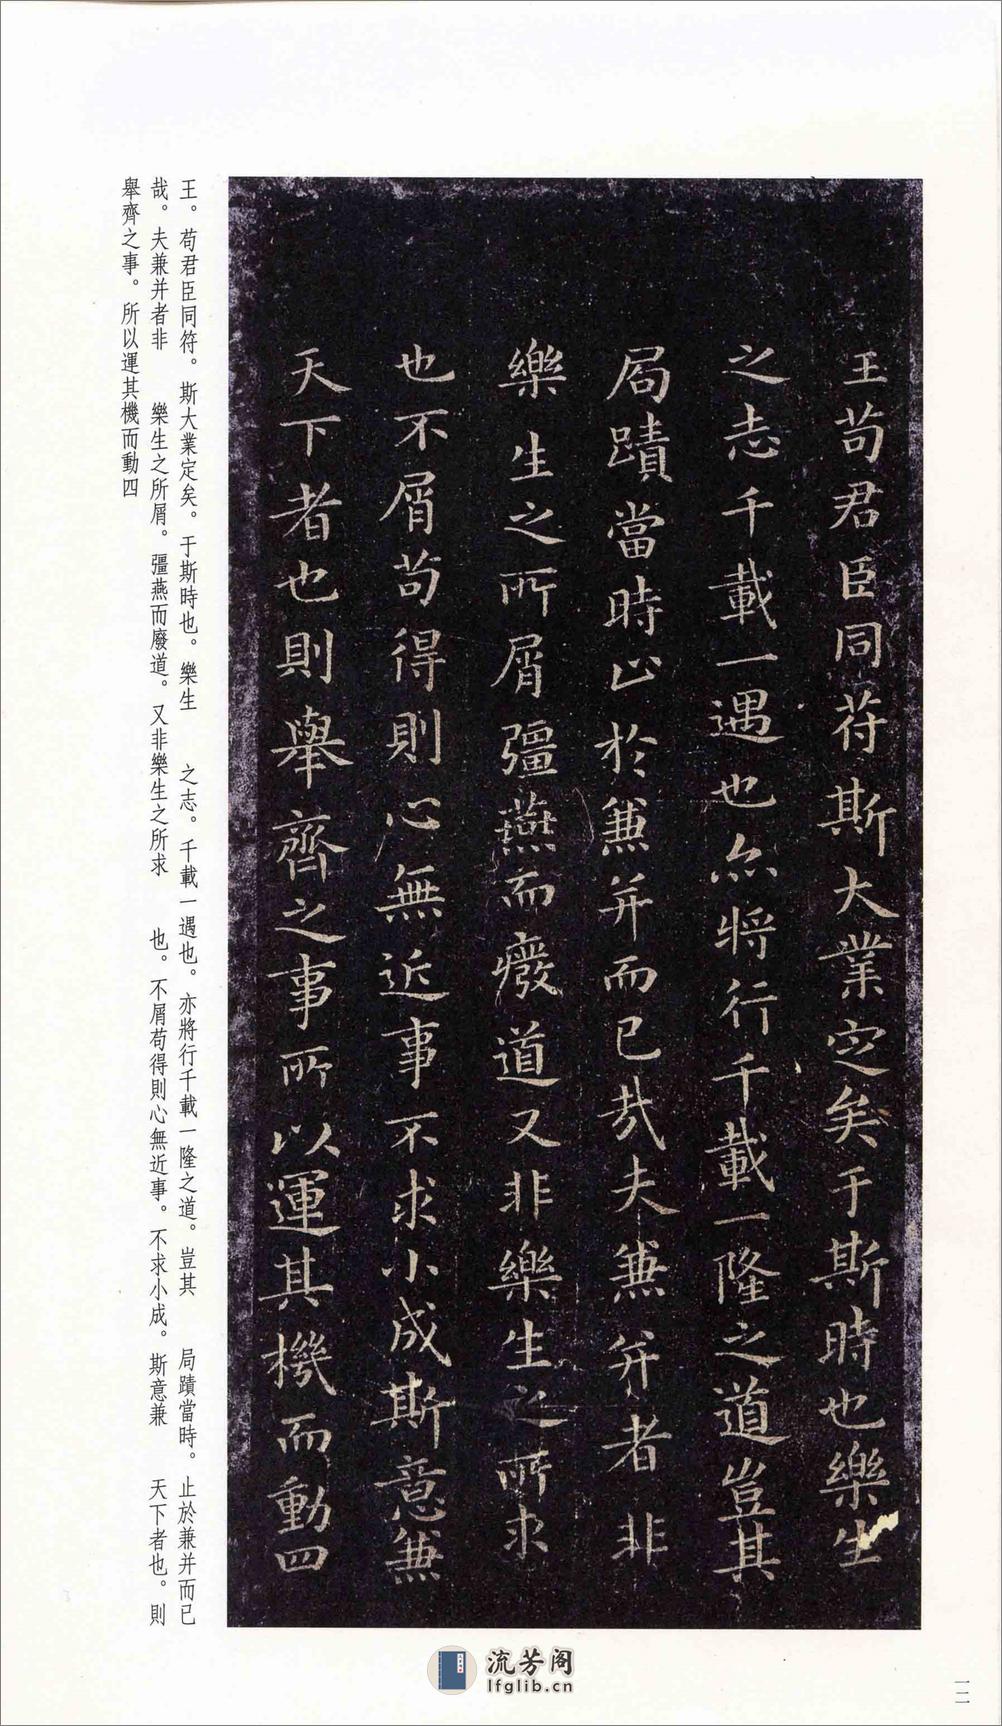 王苟君臣同符斯大業定矣于斯時也樂生
之志千載一遇也亦將行千載一隆之道豈其
局蹟當時止於兼并而已哉夫兼并者非
樂生之所屑彊燕而廢道又非樂生之所求
也不屑苟得則心無近事不求小成斯意兼
天下者也則舉齊之事所以運其機而動四
王。苟君臣同符。斯大業定矣。于斯時也。樂生　之志。千載一遇也。亦將行千載一隆之道。豈其　局蹟當時。止於兼并而已
哉。夫兼并者非　樂生之所屑。彊燕而廢道。又非樂生之所求　也。不屑苟得則心無近事。不求小成。斯意兼　天下者也。則
舉齊之事。所以運其機而動四
流芳阁
lfglib.cn
一二